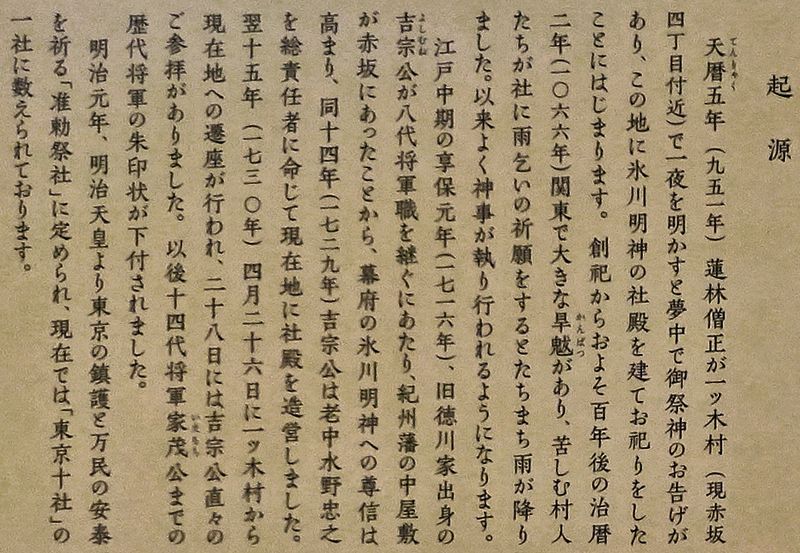 起源
天暦五年(九五一年)蓮林僧正が一ッ木村(現赤坂
四丁目付近)で一夜を明かすと夢中で御祭神のお告げが
あり、この地に氷川明神の社殿を建てお祀りをした
ことにはじまります。創祀からおよそ百年後の治暦
二年(一〇六六年)関東で大きな旱魃があり、苦しむ村人
たちが社に雨乞いの祈願をするとたちまち雨が降り
ました。以来よく神事が執り行われるようになります。
江戸中期の享保元年(一七一六年)、旧徳川家出身の
吉宗公が八代将軍職を継ぐにあたり、紀州藩の中屋敷
が赤坂にあったことから、幕府の氷川明神への尊信は
高まり、同十四年(一七二九年)吉宗公は老中水野忠之
を総責任者に命じて現在地に社殿を造営しました。
翌十五年(一七三〇年)四月二十六日に一ッ木村から
現在地への遷座が行われ、二十八日には吉宗公直々の
ご参拝がありました。以後十四代将軍家茂公までの
歴代将軍の朱印状が下付されました。
明治元年、明治天皇より東京の鎮護と万民の安泰
を祈る「准勅祭社」に定められ、現在では「東京十社」の
一社に数えられております。